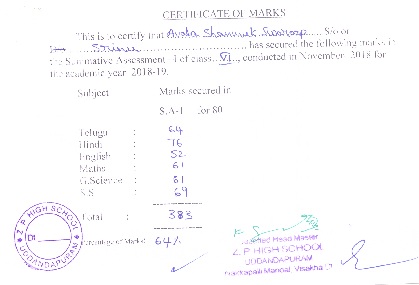 CERTIFICATE OF MARKS
This is to certify that Avala Shanmuk Swaroop .... S/o or
D/o Srinu .................... has secured the following marks in
the Summative Assessment -I of class...VI..., conducted in November 2018 for
the academic year 2018-19.
Subject Marks secured in
S.A-I for 80
Telugu : 64
Hindi : 76
English : 52
Maths : 61
G.Science : 61
S.S : 69
Total : 383
Percentage of Marks: 64%
Z P HIGH SCHOOL
UDDANDAPURAM
Head Master
Z. P HIGH SCHOOL
UDDANDAPURAM
Mandal, Visakha